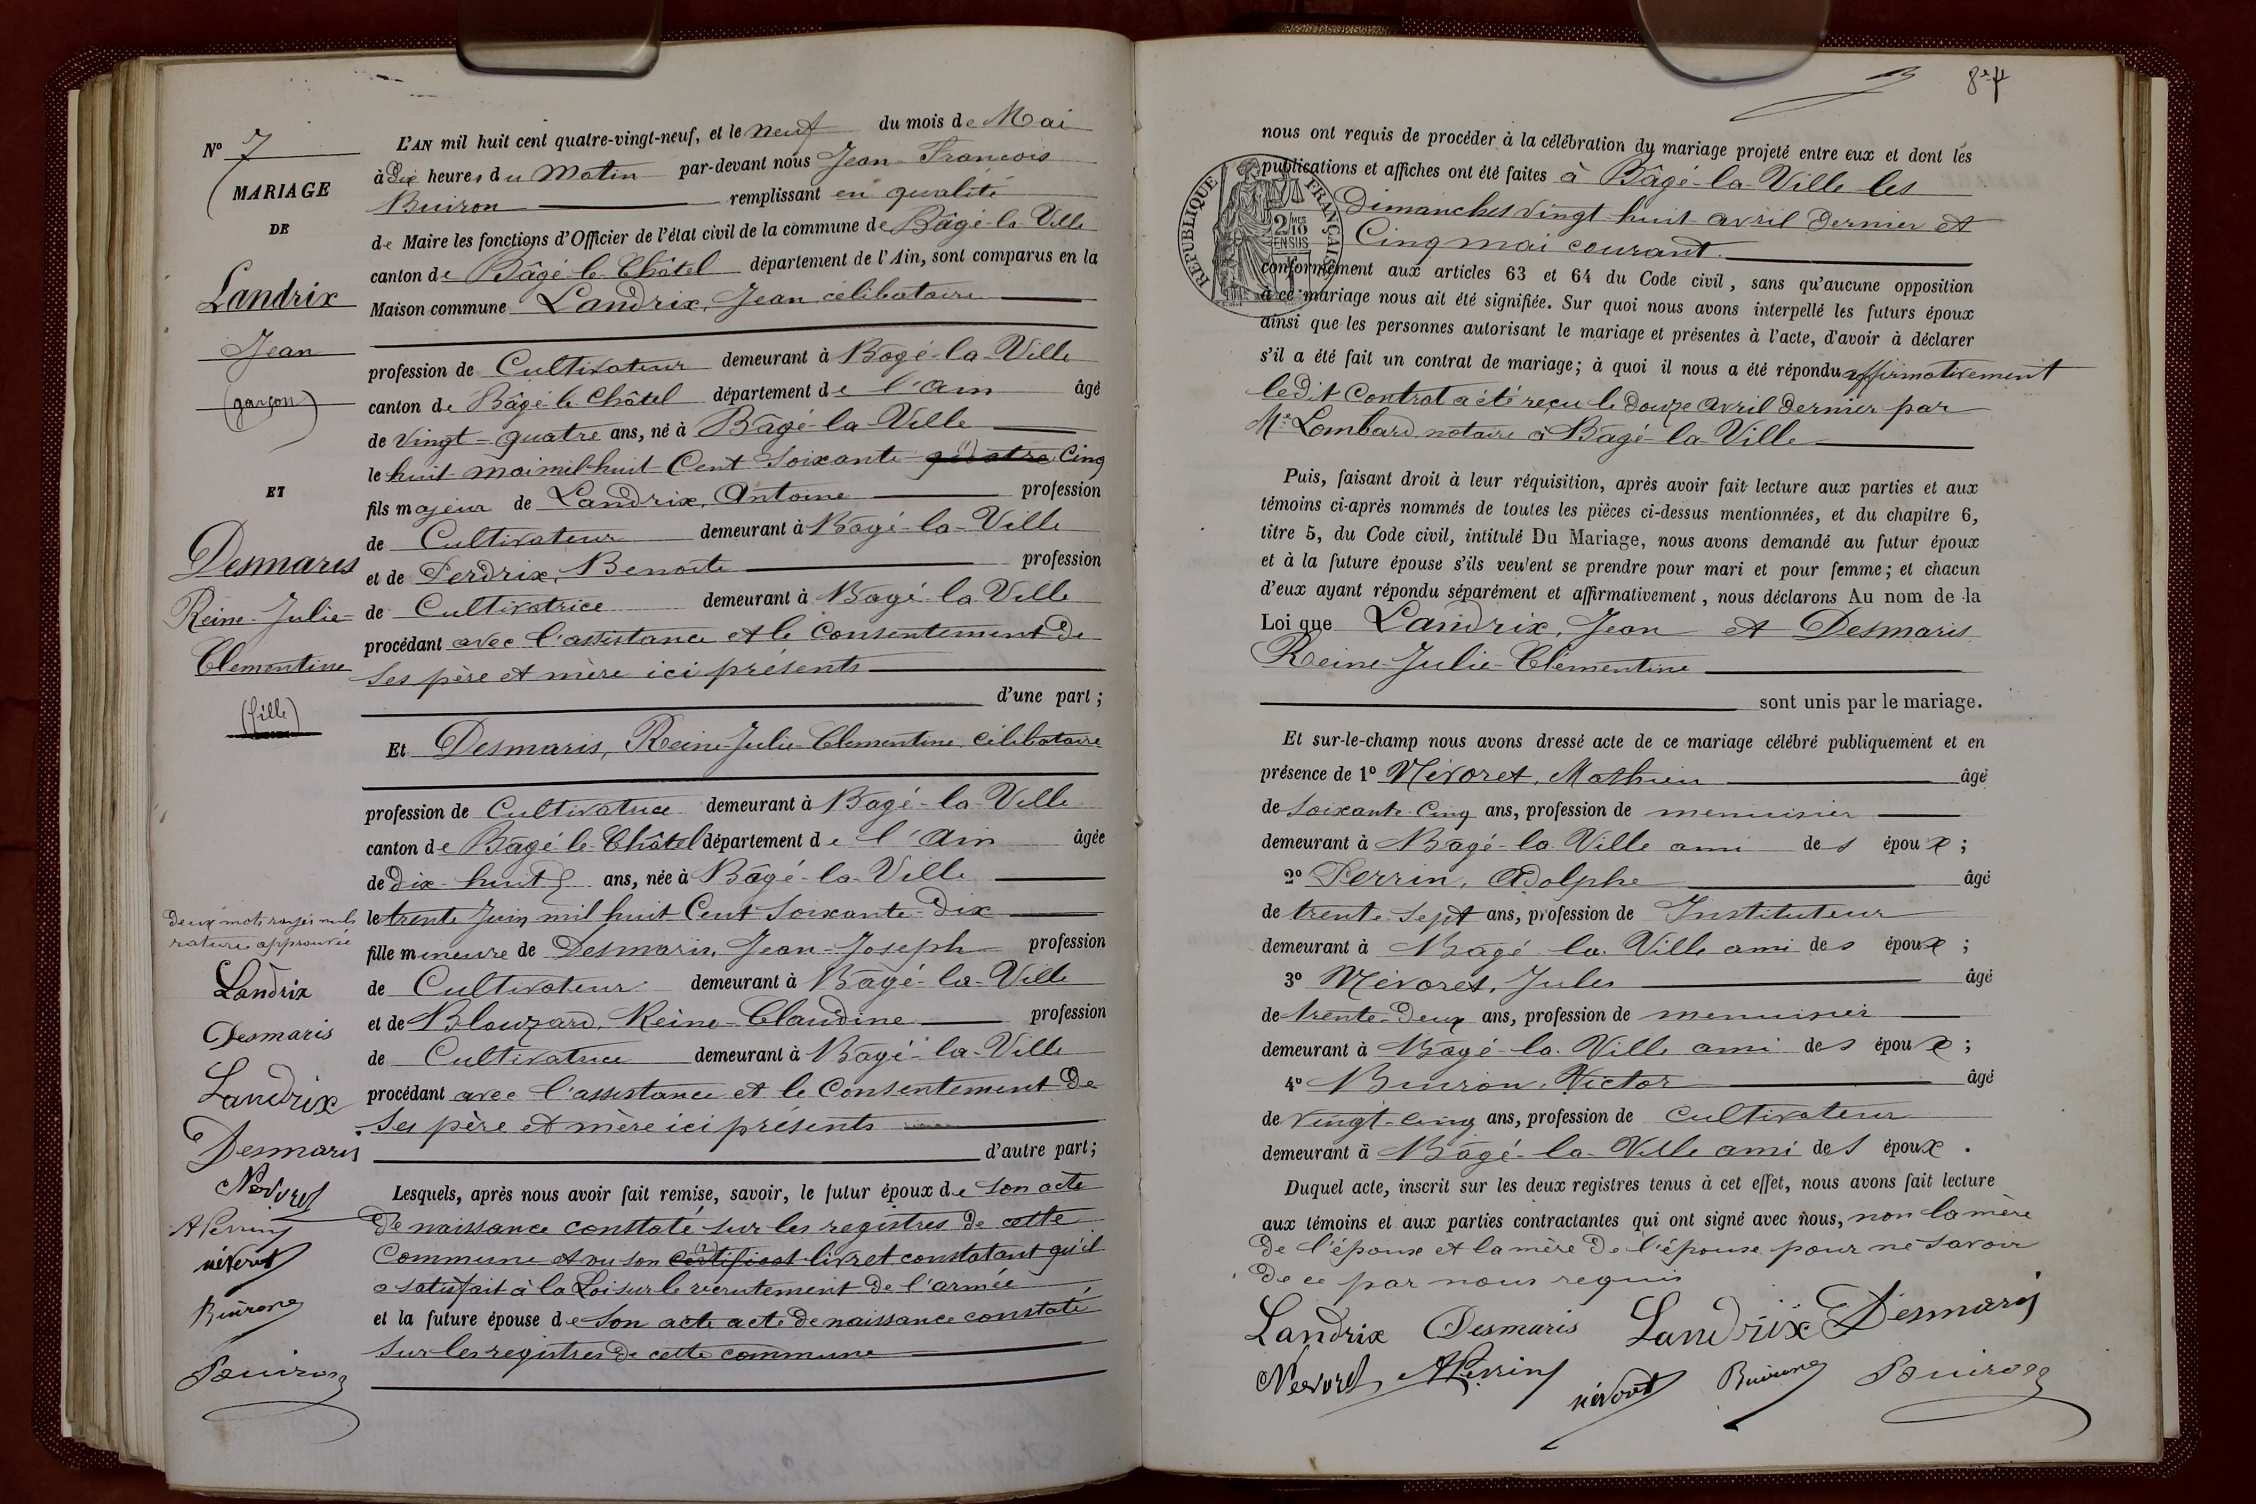 N° 7
MARIAGE
DE
Landrix
Jean
(garçon)
ET
Desmaris
Reine-Julie-
Clementine
(fille)
deux mots rayés nuls
rature approuvée
Landrix
Desmaris
Landrix
Desmaris
Nevoret
A Perrin
névoret
Buiron
Buiron
L'AN mil huit cent quatre-vingt-neuf, et le neuf du mois de Mai
à Dix heures du Matin par-devant nous Jean-François
Buiron remplissant en qualité
de Maire les fonctions d'Officier de l'état civil de la commune de Bâgé-la-Ville
canton de Bâgé-le-Châtel département de l'Ain, sont comparus en la
Maison commune Landrix, Jean célibataire
profession de Cultivateur demeurant à Bâgé-la-Ville
canton de Bâgé-le-Châtel département de l'Ain âgé
de vingt-quatre ans, né à Bâgé-la-Ville
le huit mai mil huit Cent Soixante quatre Cinq
fils majeur de Landrix, Antoine profession
de Cultivateur demeurant à Bâgé-la-Ville
et de Perdrix, Benoite profession
de Cultivatrice demeurant à Bagé-la-Ville
procédant avec l'assistance et le Consentement de
Ses père et mère ici présents
d'une part ;
Et Desmaris, Reine-Julie-Clementine célibataire
profession de Cultivatrice demeurant à Bagé-la-Ville
canton de Bâgé-le-Châtel département de l'Ain âgée
de Dix-huit ans, née à Bâgé-la-Ville
le trente Juin mil huit Cent Soixante-Dix
fille mineure de Desmaris, Jean-Joseph profession
de Cultivateur demeurant à Bâgé-la-Ville
et de Blouzard, Reine-Claudine profession
de Cultivatrice demeurant à Bâgé-la-Ville
procédant avec l'assistance et le Consentement de
Ses père et mère ici présents
d'autre part ;
Lesquels, après nous avoir fait remise, savoir, le futur époux de Son acte
De naissance constaté sur les registres de cette
Commune et vu son certificat (1) livret constatant qu'il
a satisfait à la Loi sur le recrutement de l'armée
et la future épouse de Son acte acte de naissance constaté
Sur les registres de cette commune
nous ont requis de procéder à la célébration du mariage projeté entre eux et dont les
publications et affiches ont été faites à Bâgé-la-Ville les
Dimanches vingt-huit avril Dernier et
Cinq mai courant.
RÉPUBLIQUE FRANÇAISE
2/10
EN SUS
conformément aux articles 63 et 64 du Code civil, sans qu'aucune opposition
à ce mariage nous ait été signifiée. Sur quoi nous avons interpellé les futurs époux
ainsi que les personnes autorisant le mariage et présentes à l'acte, d'avoir à déclarer
s'il a été fait un contrat de mariage; à quoi il nous a été répondu affirmativement
ledit Contrat a été reçu le douze avril dernier par
Me Lombard notaire à Bâgé-la-Ville
Puis, faisant droit à leur réquisition, après avoir fait lecture aux parties et aux
témoins ci-après nommés de toutes les pièces ci-dessus mentionnées, et du chapitre 6,
titre 5, du Code civil, intitulé Du Mariage, nous avons demandé au futur époux
et à la future épouse s'ils veulent se prendre pour mari et pour femme; et chacun
d'eux ayant répondu séparément et affirmativement, nous déclarons Au nom de la
Loi que Landrix, Jean et Desmaris
Reine-Julie-Clementine
sont unis par le mariage.
Et sur-le-champ nous avons dressé acte de ce mariage célébré publiquement et en
présence de 1° Névoret, Mathieu âgé
de Soixante-Cinq ans, profession de menuisier
demeurant à Bagé-la-Ville ami des époux ;
2° Perrin, Adolphe âgé
de trente-sept ans, profession de Instituteur
demeurant à Bagé la Ville ami des époux ;
3° Névoret, Jules âgé
de trente-Deux ans, profession de menuisier
demeurant à Bagé-la-Ville ami des époux ;
4° Buiron, Victor âgé
de vingt-cinq ans, profession de cultivateur
demeurant à Bâgé-la-Ville ami des époux .
Duquel acte, inscrit sur les deux registres tenus à cet effet, nous avons fait lecture
aux témoins et aux parties contractantes qui ont signé avec nous, non la mère
De l'époux et la mère De l'épouse pour ne savoir
De ce par nous requis
Landrix Desmaris Landrix Desmaris
Nevoret A Perrin névoret Buiron Buiron